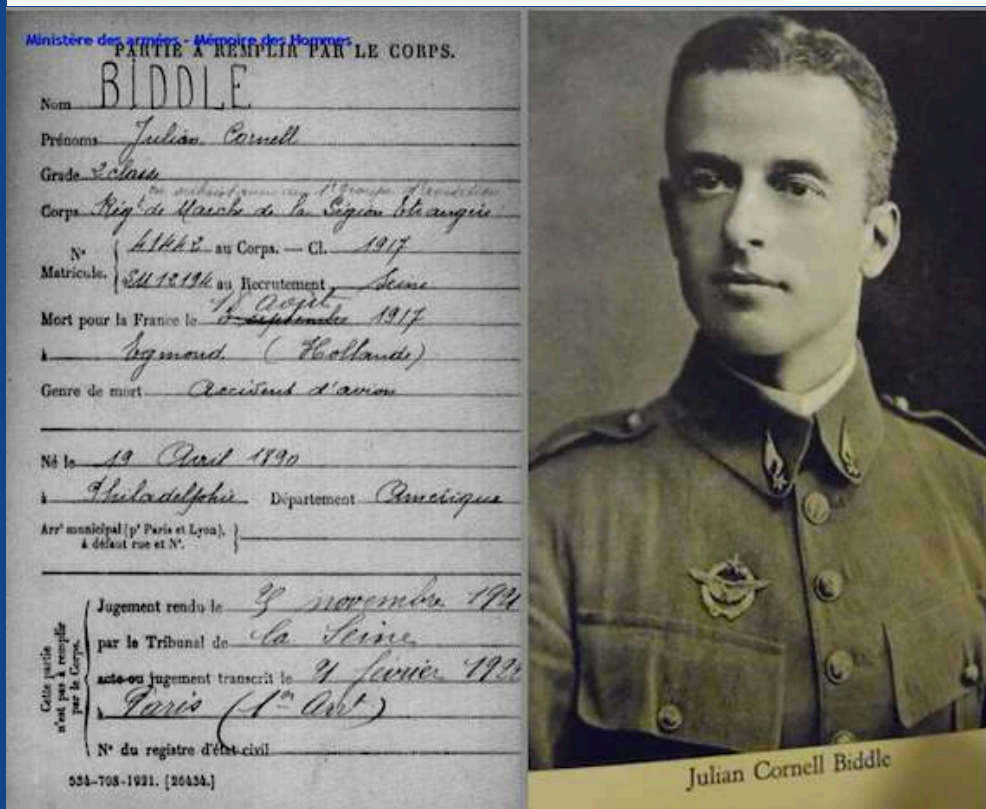 Ministère des armées - Mémoire des Hommes
PARTIE À REMPLIR PAR LE CORPS.
Nom BIDDLE
Prénoms Julian Cornell
Grade 2 classe
1er Groupe d'aviation
Corps Régt de Marche de la Légion Etrangère
N° Matricule. 41442 au Corps. — Cl. 1917
au Recrutement Seine
18 Août
Mort pour la France le 3 septembre 1917
à Egmond (Hollande)
Genre de mort Accident d'avion
Né le 19 Avril 1890
à Philadelphie Département Amérique
Arrt municipal (pr Paris et Lyon), à défaut rue et N°.
Cette partie n'est pas à remplir par le Corps.
Jugement rendu le novembre 1921
par le Tribunal de la Seine
acte ou jugement transcrit le 21 février 1922
à Paris (1er Arrt)
N° du registre d'état civil
534-708-1921. [26434.]
Julian Cornell Biddle